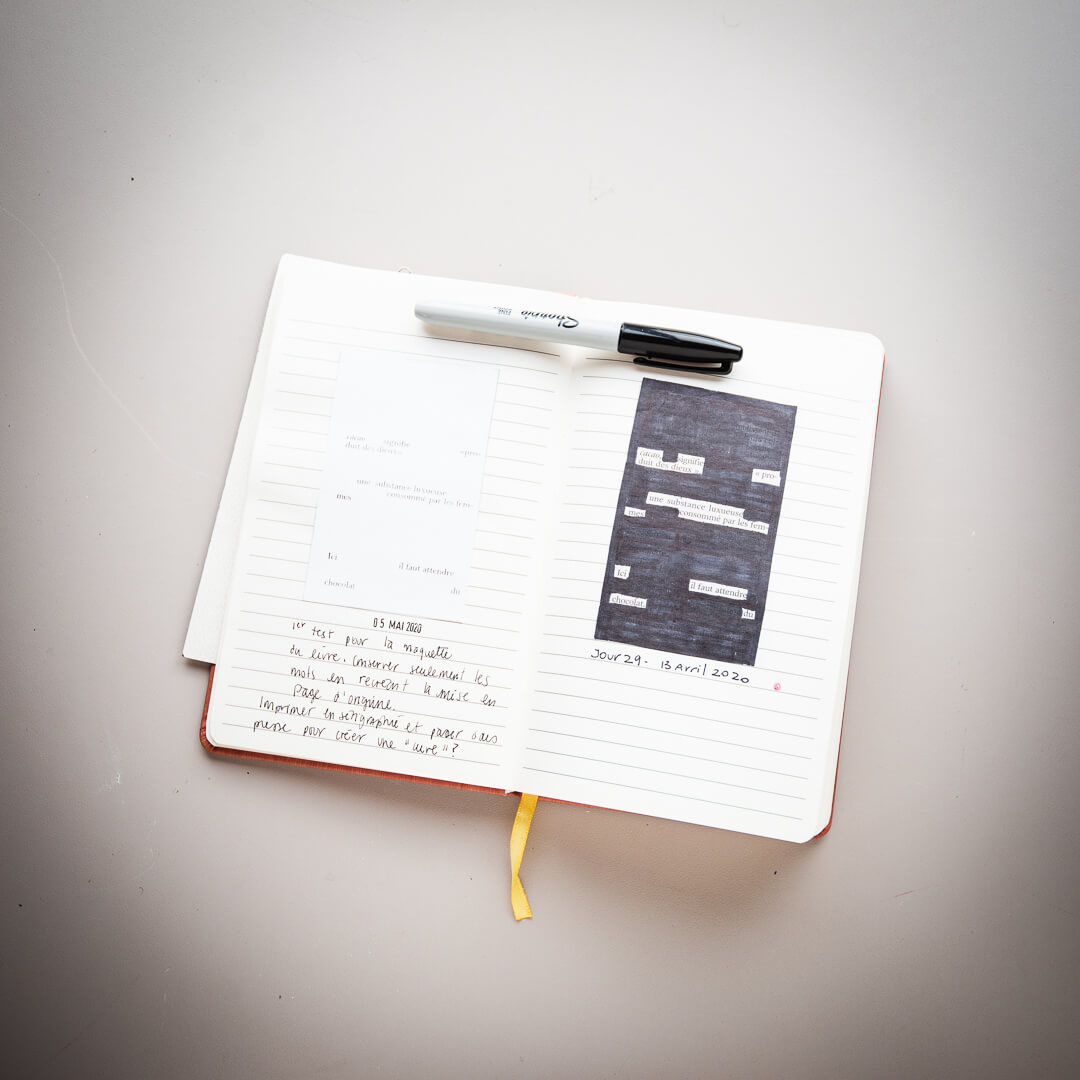 Sharpie
cacao, signifie
duit des dieux »
« pro-
une substance luxueuse
mes consommé par les fem-
Ici
il faut attendre
chocolat
du
05 MAI 2020
1er test pour la maquette
du livre. Conserver seulement les
mots en recréant la mise en
page d'origine.
Imprimer en sérigraphie et passer sous
presse pour créer une "cuve"?
cacao, signifie
duit des dieux »
« pro-
une substance luxueuse
mes consommé par les fem-
Ici
il faut attendre
chocolat
du
Jour 29. 13 Avril 2020